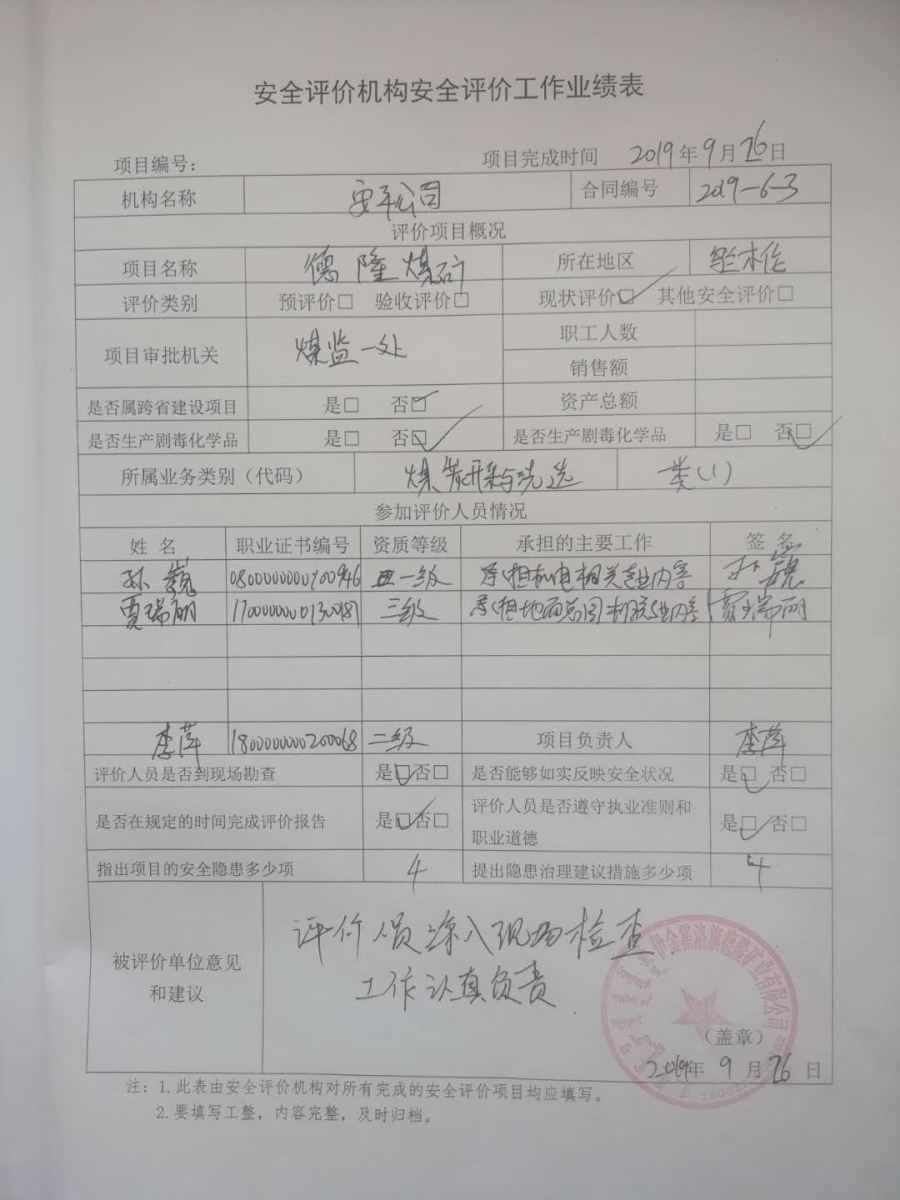 安全评价机构安全评价工作业绩表
项目编号： 项目完成时间 2019年9月26日
机构名称 安平公司 合同编号 2019-6-3
评价项目概况
项目名称 德隆煤矿 所在地区
评价类别 预评价□ 验收评价□ 现状评价☑ 其他安全评价□
项目审批机关 煤监一处 职工人数
销售额
是否属跨省建设项目 是□ 否☑ 资产总额
是否生产剧毒化学品 是□ 否☑ 是否生产剧毒化学品 是□ 否☑
所属业务类别（代码） 煤炭开采与洗选 一类(1)
参加评价人员情况
姓 名 职业证书编号 资质等级 承担的主要工作 签 名
孙巍 一级 承担机电相关专业内容 孙巍
贾瑞丽 三级 承担地面总图相关专业内容 贾瑞丽
李萍 1800000000200068 二级 项目负责人 李萍
评价人员是否到现场勘查 是☑否□ 是否能够如实反映安全状况 是☑ 否□
是否在规定的时间完成评价报告 是☑否□ 评价人员是否遵守执业准则和职业道德 是☑ 否□
指出项目的安全隐患多少项 4 提出隐患治理建议措施多少项 4
被评价单位意见和建议 评价人员深入现场检查
工作认真负责
伊金霍洛旗德隆矿业有限公司
（盖章）
2019年9月26日
注：1.此表由安全评价机构对所有完成的安全评价项目均应填写。
2.要填写工整，内容完整，及时归档。